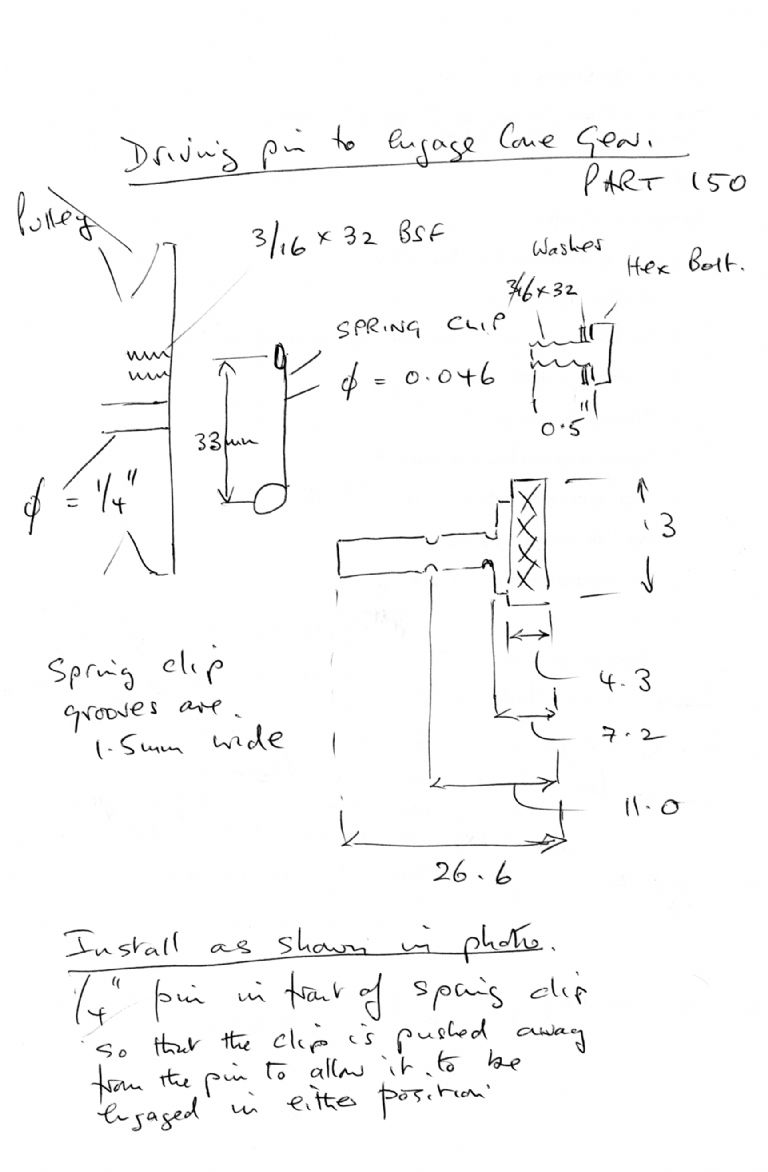 Driving pin to engage Cone Gear.
PART 150
Pulley
3/16 x 32 BSF
Washer
Hex Bolt.
3/16 x 32
SPRING CLIP
ϕ = 0.046
0.5
33mm
ϕ = 1/4"
.3
Spring clip
grooves are.
1.5mm wide
4.3
7.2
11.0
26.6
Install as shown in photo.
1/4" pin in front of spring clip
so that the clip is pushed away
from the pin to allow it. to be
engaged in either position